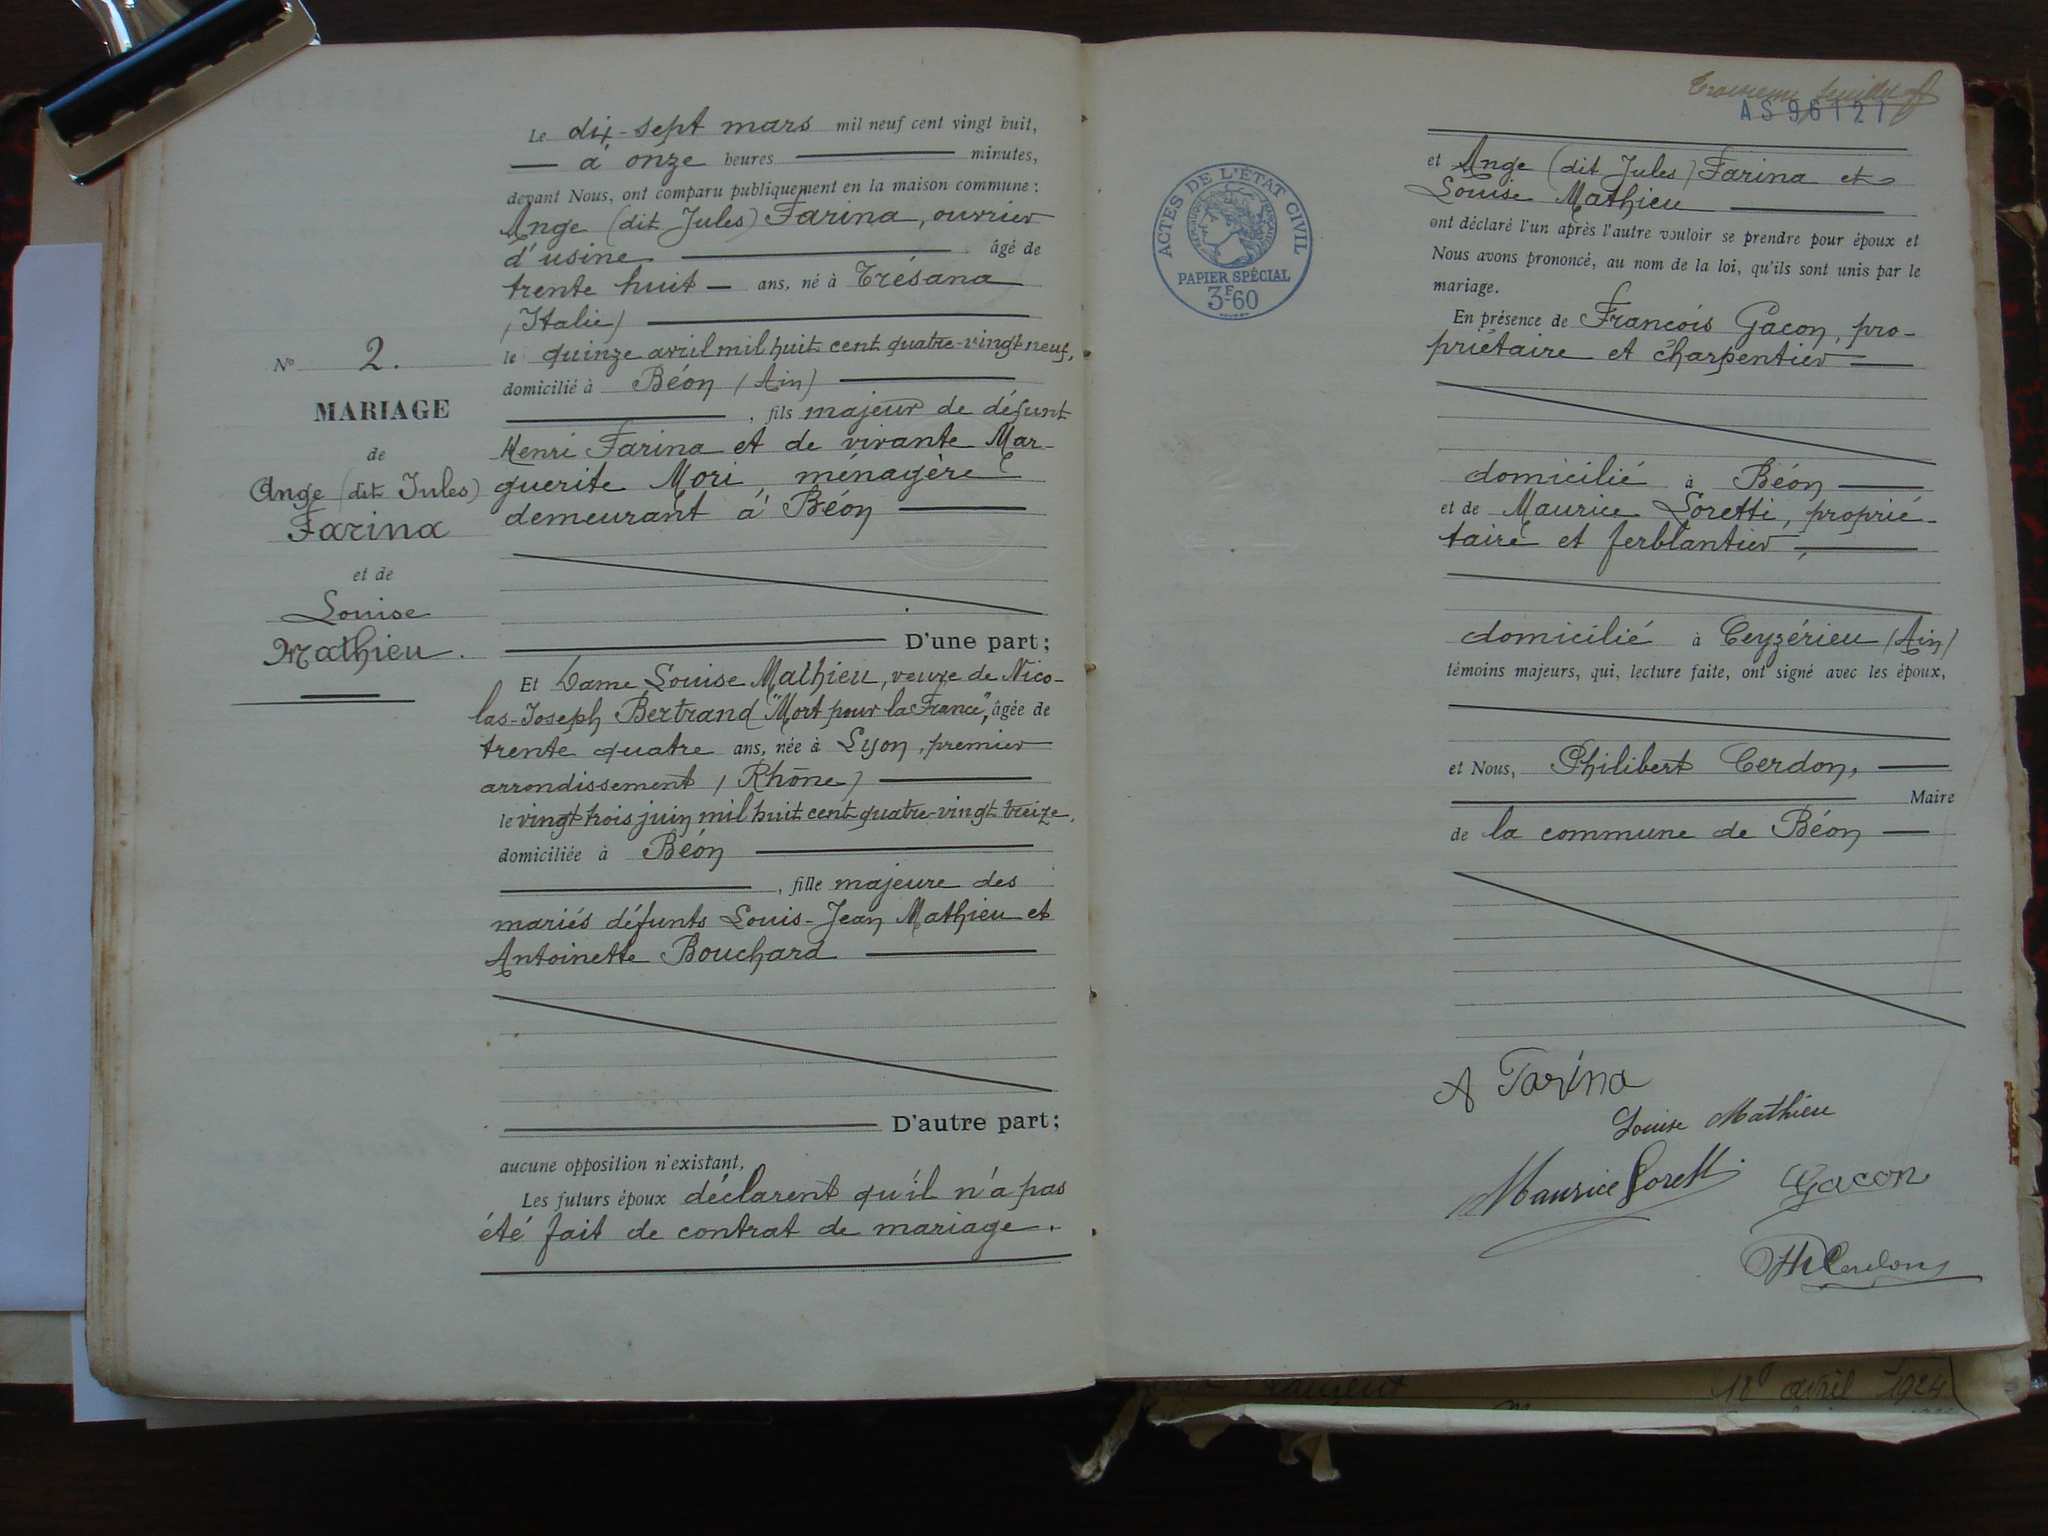 Le dix-sept mars mil neuf cent vingt huit,
à onze heures minutes,
devant Nous, ont comparu publiquement en la maison commune :
Ange (dit Jules) Farina, ouvrier
d'usine âgé de
trente huit ans, né à Trésana
(Italie)
le quinze avril mil huit cent quatre-vingt neuf,
domicilié à Béon (Ain)
, fils majeur de défunt
Henri Farina et de vivante Mar-
guerite Mori, ménagère
demeurant à Béon
D'une part ;
Et Dame Louise Mathieu, veuve de Nico-
las-Joseph Bertrand "Mort pour la France", âgée de
trente quatre ans, née à Lyon, premier
arrondissement (Rhône)
le vingt trois juin mil huit cent quatre-vingt treize,
domiciliée à Béon
, fille majeure des
mariés défunts Louis-Jean Mathieu et
Antoinette Bouchard
D'autre part ;
aucune opposition n'existant,
Les futurs époux déclarent qu'il n'a pas
été fait de contrat de mariage.
No 2.
MARIAGE
de
Ange (dit Jules)
Farina
et de
Louise
Mathieu.
Troisième feuillet
AS 96121
ACTES DE L'ÉTAT CIVIL
RÉPUBLIQUE FRANÇAISE
PAPIER SPÉCIAL
3F60
et Ange (dit Jules) Farina et
Louise Mathieu
ont déclaré l'un après l'autre vouloir se prendre pour époux et
Nous avons prononcé, au nom de la loi, qu'ils sont unis par le
mariage.
En présence de François Gacon, pro-
priétaire et charpentier
domicilié à Béon
et de Maurice Loretti, proprié-
taire et ferblantier,
domicilié à Ceyzérieu (Ain)
témoins majeurs, qui, lecture faite, ont signé avec les époux,
et Nous, Philibert Cerdon,
Maire
de la commune de Béon
A Farina
Louise Mathieu
Maurice Loretti
Gacon
Ph Cerdon
12 avril 1924